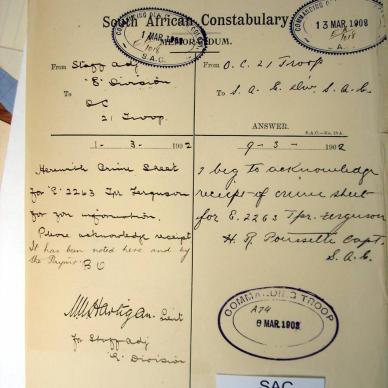 South African Constabulary.
MEMORANDUM.
1 MAR 1902
S.A.C.
13 MAR. 1902
From Staff Adj
"E" Division
To
OC
21 Troop
1 - 3 - 1902
Herewith Crime Sheet
for "E" 2263 Tpr Ferguson
for your information.
Please acknowledge receipt
It has been noted here and by
the Paymr.
M Hartigan Lieut
for Staff Adj
"E" Division
From O.C. 21 Troop
To S. A. E Div. S.A.C.
ANSWER.
S.A.C.—No. 19A.
9 - 3 - 1902
I beg to acknowledge
receipt of crime sheet
for E. 2263 Tpr. Ferguson
Capt.
S.A.C.
COMMANDING TROOP
A74
9 MAR. 1902
SAC